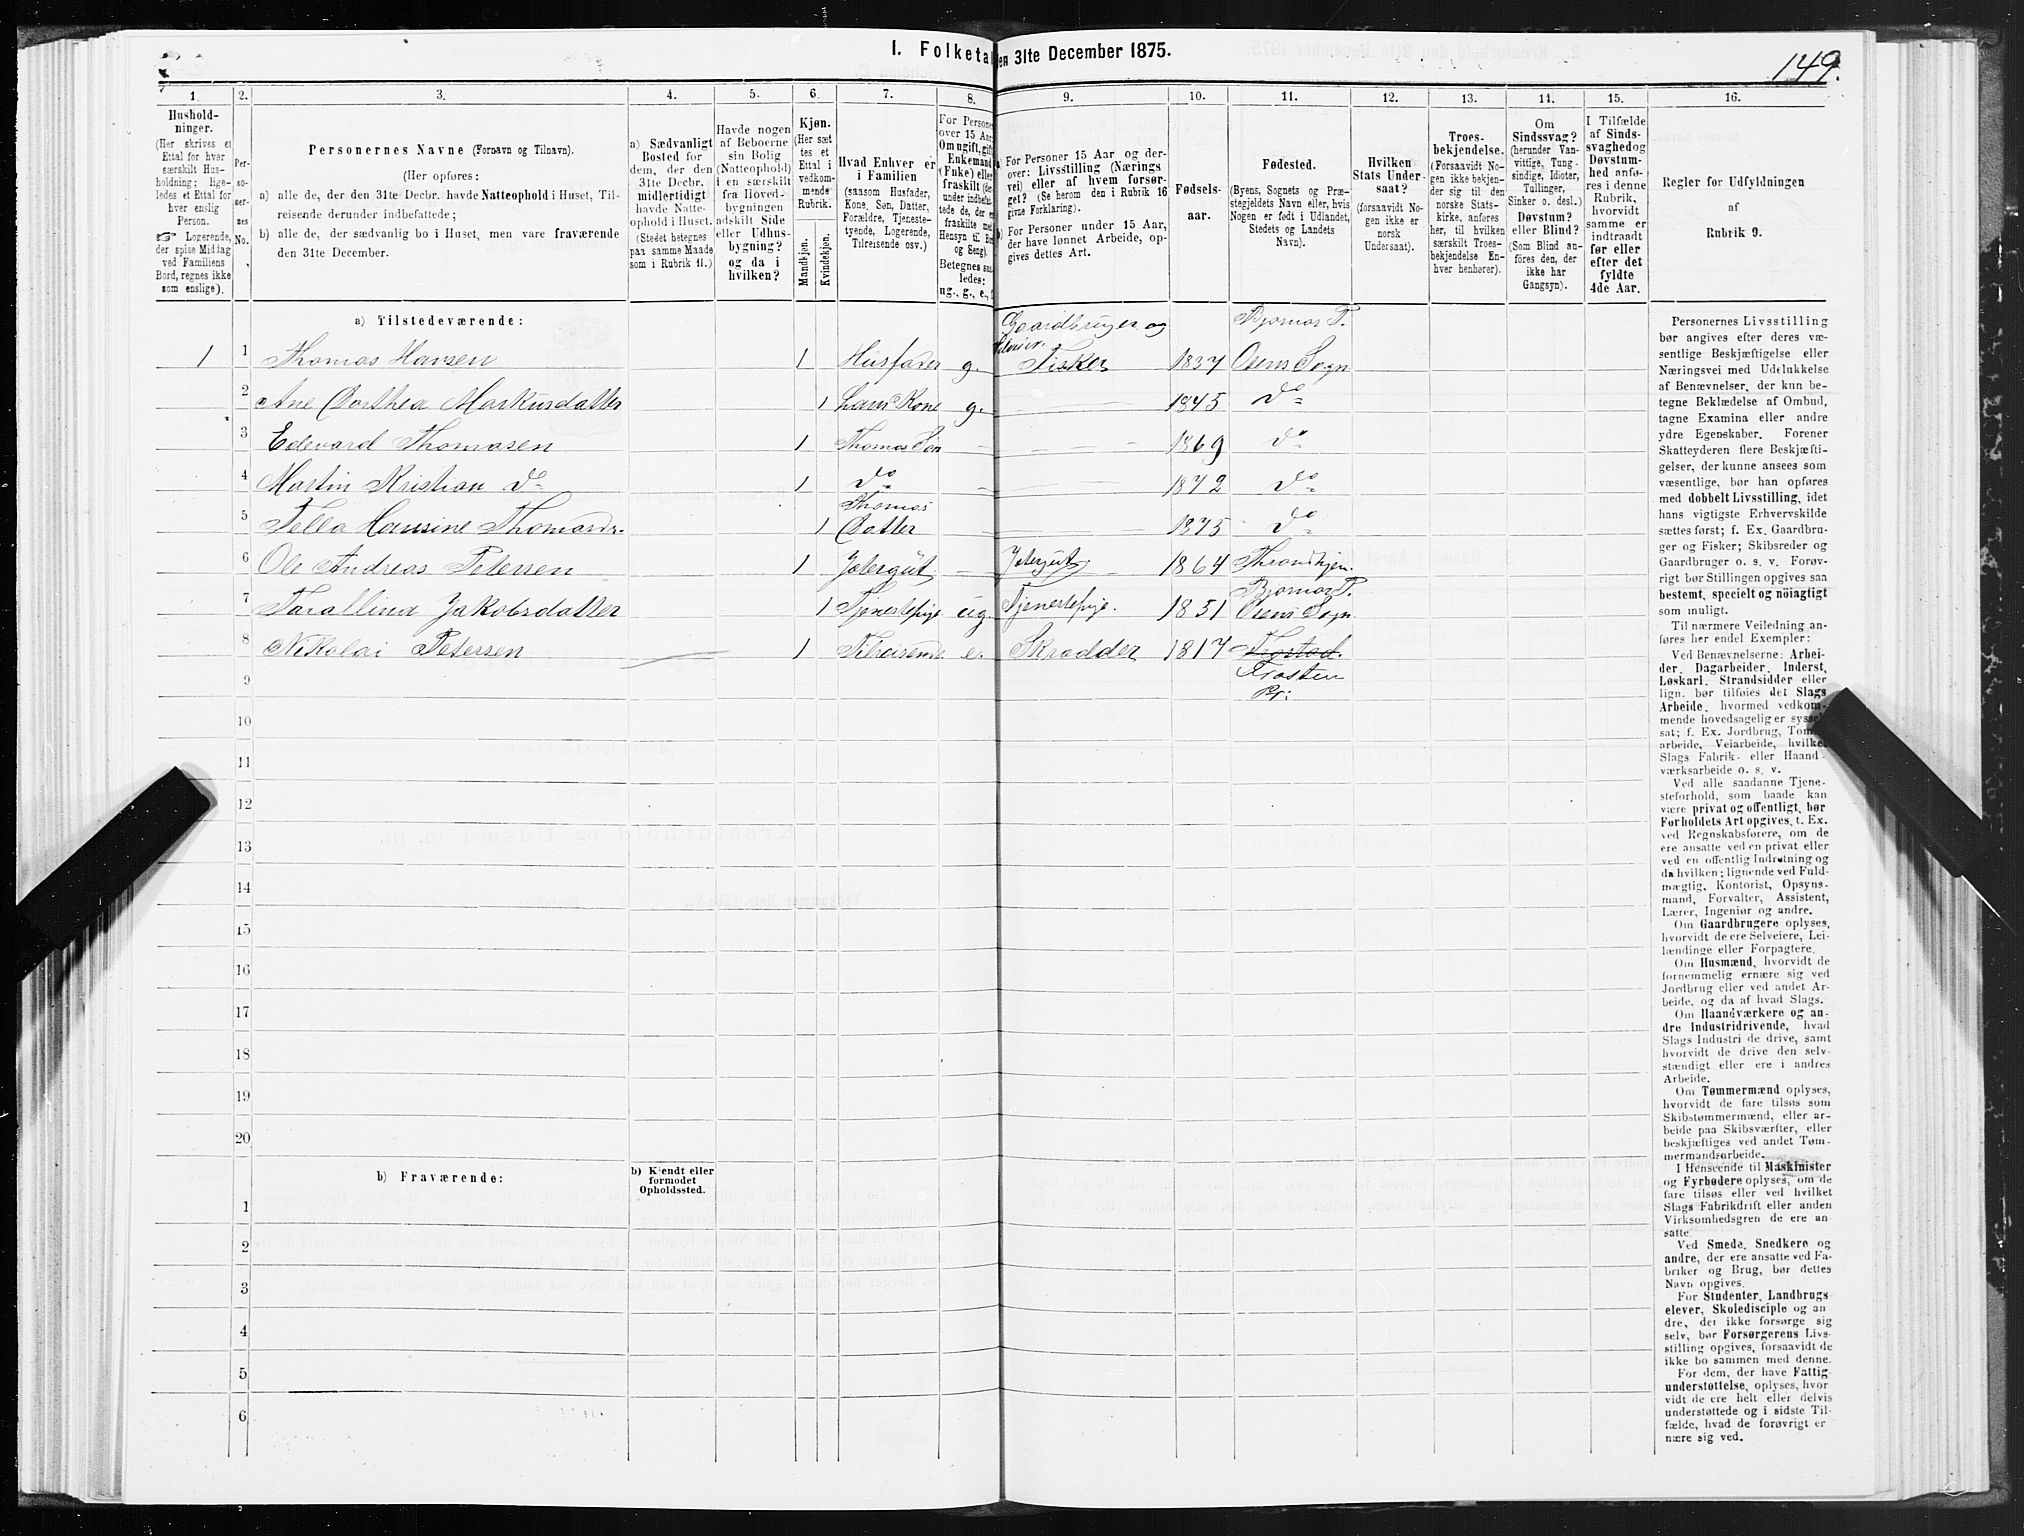 I. Folketal den 31te December 1875.
149.
1. 2. 3. 4. 5. 6. 7. 8. 9. 10. 11. 12. 13. 14. 15. 16.
Husholdninger.
(Her skrives et
Ettal for hver
særskilt Husholdning;
ligeledes et Ettal for
hver enslig
Person.
☞ Logerende,
der spise Middag
ved Familiens
Bord, regnes ikke
som enslige).
Personernes No.
Personernes Navne (Fornavn og Tilnavn).
(Her opføres:
a) alle de, der den 31te Decbr. havde Natteophold i Huset, Tilreisende derunder indbefattede;
b) alle de, der sædvanlig bo i Huset, men vare fraværende
den 31te December.
a) Sædvanligt
Bosted for
dem, der den
31te Decbr.
midlertidigt
havde Natteophold i Huset.
(Stedet betegnes
paa samme Maade
som i Rubrik 11.)
Havde nogen
af Beboerne
sin Bolig
(Natteophold)
i en særskilt
fra Hovedbygningen
adskilt Side
eller Udhusbygning?
og da i
hvilken?
Kjøn.
(Her sættes et
Ettal i
vedkommende
Rubrik.
Mandkjøn.
Kvindekjøn.
Hvad Enhver er
i Familien
(saasom Husfader,
Kone, Søn, Datter,
Forældre, Tjenestetyende, Logerende,
Tilreisende osv.)
For Personer
over 15 Aar:
Om ugift, gift,
Enkemand
(Enke) eller
fraskilt
Betegnes saaledes:
ug., g., e.,
a) For Personer 15 Aar og derover: Livsstilling (Næringsvei) eller af hvem forsørget? (Se herom den i Rubrik 16
givne Forklaring).
b) For Personer under 15 Aar,
der have lønnet Arbeide, opgives dettes Art.
Fødselsaar.
Fødested.
(Byens, Sognets og Præstegjeldets Navn eller, hvis
Nogen er født i Udlandet,
Stedets og Landets
Navn).
Hvilken
Stats Undersaat?
(forsaavidt Nogen ikke er
norsk
Undersaat).
Troesbekjendelse.
(Forsaavidt Nogen ikke bekjender sig til den
norske Statskirke, anføres
her, til hvilken
særskilt Troesbekjendelse Enhver henhører).
Om
Sindssvag?
(herunder Vanvittige, Tungsindige, Idioter,
Tullinger,
Sinker o. desl.)
Døvstum?
eller Blind?
(Som Blind anføres den, der
ikke har
Gangsyn).
I Tilfælde
af Sindssvaghed og
Døvstumhed anføres i denne
Rubrik,
hvorvidt
samme er
indtraadt
før eller
efter det
fyldte
4de Aar.
Regler for Udfyldningen
af
Rubrik 9.
a) Tilstedeværende:
1 1 Thomas Hansen 1 Husfader g. Gaardbruger og Selveier. Fisker 1837 Bjørnør P. Osens Sogn
2 Ane Dorthea Markusdatter 1 hans Kone g. 1845 do
3 Edevard Thomasen 1 Thomas Søn 1869 do
4 Martin Kristian do 1 do 1872 do
5 Tella Hansine Thomasd. 1 Thomas Datter 1875 do
6 Ole Andreas Petersen 1 Jætergut Jætergut 1864 Throndhjem.
7 Jakobsdatter 1 Tjenestepige ug. Tjenestepige. 1851 Bjørnør P. Osens Sogn
8 Nikolai Petersen 1 Tilreisende e. Skrædder 1817 Frostad. Frosten Pr:
9
10
11
12
13
14
15
16
17
18
19
20
b) Fraværende:
b) Kjendt eller
formodet
Opholdssted.
1
2
3
4
5
6
Personernes Livsstilling
bør angives efter deres væsentlige Beskjæftigelse eller
Næringsvei med Udelukkelse
af Benævnelser, der kun betegne Beklædelse af Ombud,
tagne Examina eller andre
ydre Egenskaber. Forener
Skatteyderen flere Beskjæftigelser, der kunne ansees som
væsentlige, bør han opføres
med dobbelt Livsstilling, idet
hans vigtigste Erhvervskilde
sættes først; f. Ex. Gaardbruger og Fisker; Skibsreder og
Gaardbruger o. s. v. Forøvrigt bør Stillingen opgives saa
bestemt, specielt og nöiagtigt
som muligt.
Til nærmere Veiledning anføres her endel Exempler:
Ved Benævnelserne: Arbeider, Dagarbeider, Inderst,
Løskarl, Strandsidder eller
lign. bør tilføies det Slags
Arbeide, hvormed vedkommende hovedsagelig er sysselsat; f. Ex. Jordbrug, Tomtearbeide, Veiarbeide, hvilket
Slags Fabrik- eller Haandværksarbeide o. s. v.
Ved alle saadanne Tjenesteforhold, som baade kan
være privat og offentligt, bør
Forholdets Art opgives, t. Ex.
ved Regnskabsførere, om de
ere ansatte ved en privat eller
ved en offentlig Indretning og
da hvilken; lignende ved Fuldmægtig, Kontorist, Opsynsmand, Forvalter, Assistent,
Lærer, Ingeniør og andre.
Om Gaardbrugere oplyses,
hvorvidt de ere Selveiere, Leilændinge eller Forpagtere.
Om Husmænd, hvorvidt de
fornemmelig ernære sig ved
Jordbrug eller ved andet Arbeide, og da af hvad Slags.
Om Haandværkere og andre Industridrivende, hvad
Slags Industri de drive, samt
hvorvidt de drive den selvstændigt eller ere i andres
Arbeide.
Om Tømmermænd oplyses,
hvorvidt de fare tilsøs som
Skibstømmermænd, eller arbeide paa Skibsværfter, eller
beskjæftiges ved andet Tømmermandsarbeide.
I Henseende til Maskinister
og Fyrbødere oplyses, om de
fare tilsøs eller ved hvilket
Slags Fabrikdrift eller anden
Virksomhedsgren de ere ansatte.
Ved Smede, Snedkere og
andre, der ere ansatte ved Fabriker og Brug, bør dettes
Navn opgives.
For Studenter, Landbrugselever, Skoledisciple og andre, der ikke forsørge sig
selv, bør Forsørgerens Livsstilling opgives, forsaavidt de
ikke bo sammen med denne.
For dem, der have Fattigunderstøttelse, oplyses, hvorvidt de ere helt eller delvis
understøttede og i sidste Tilfælde, hvad de forøvrigt ernære sig ved.